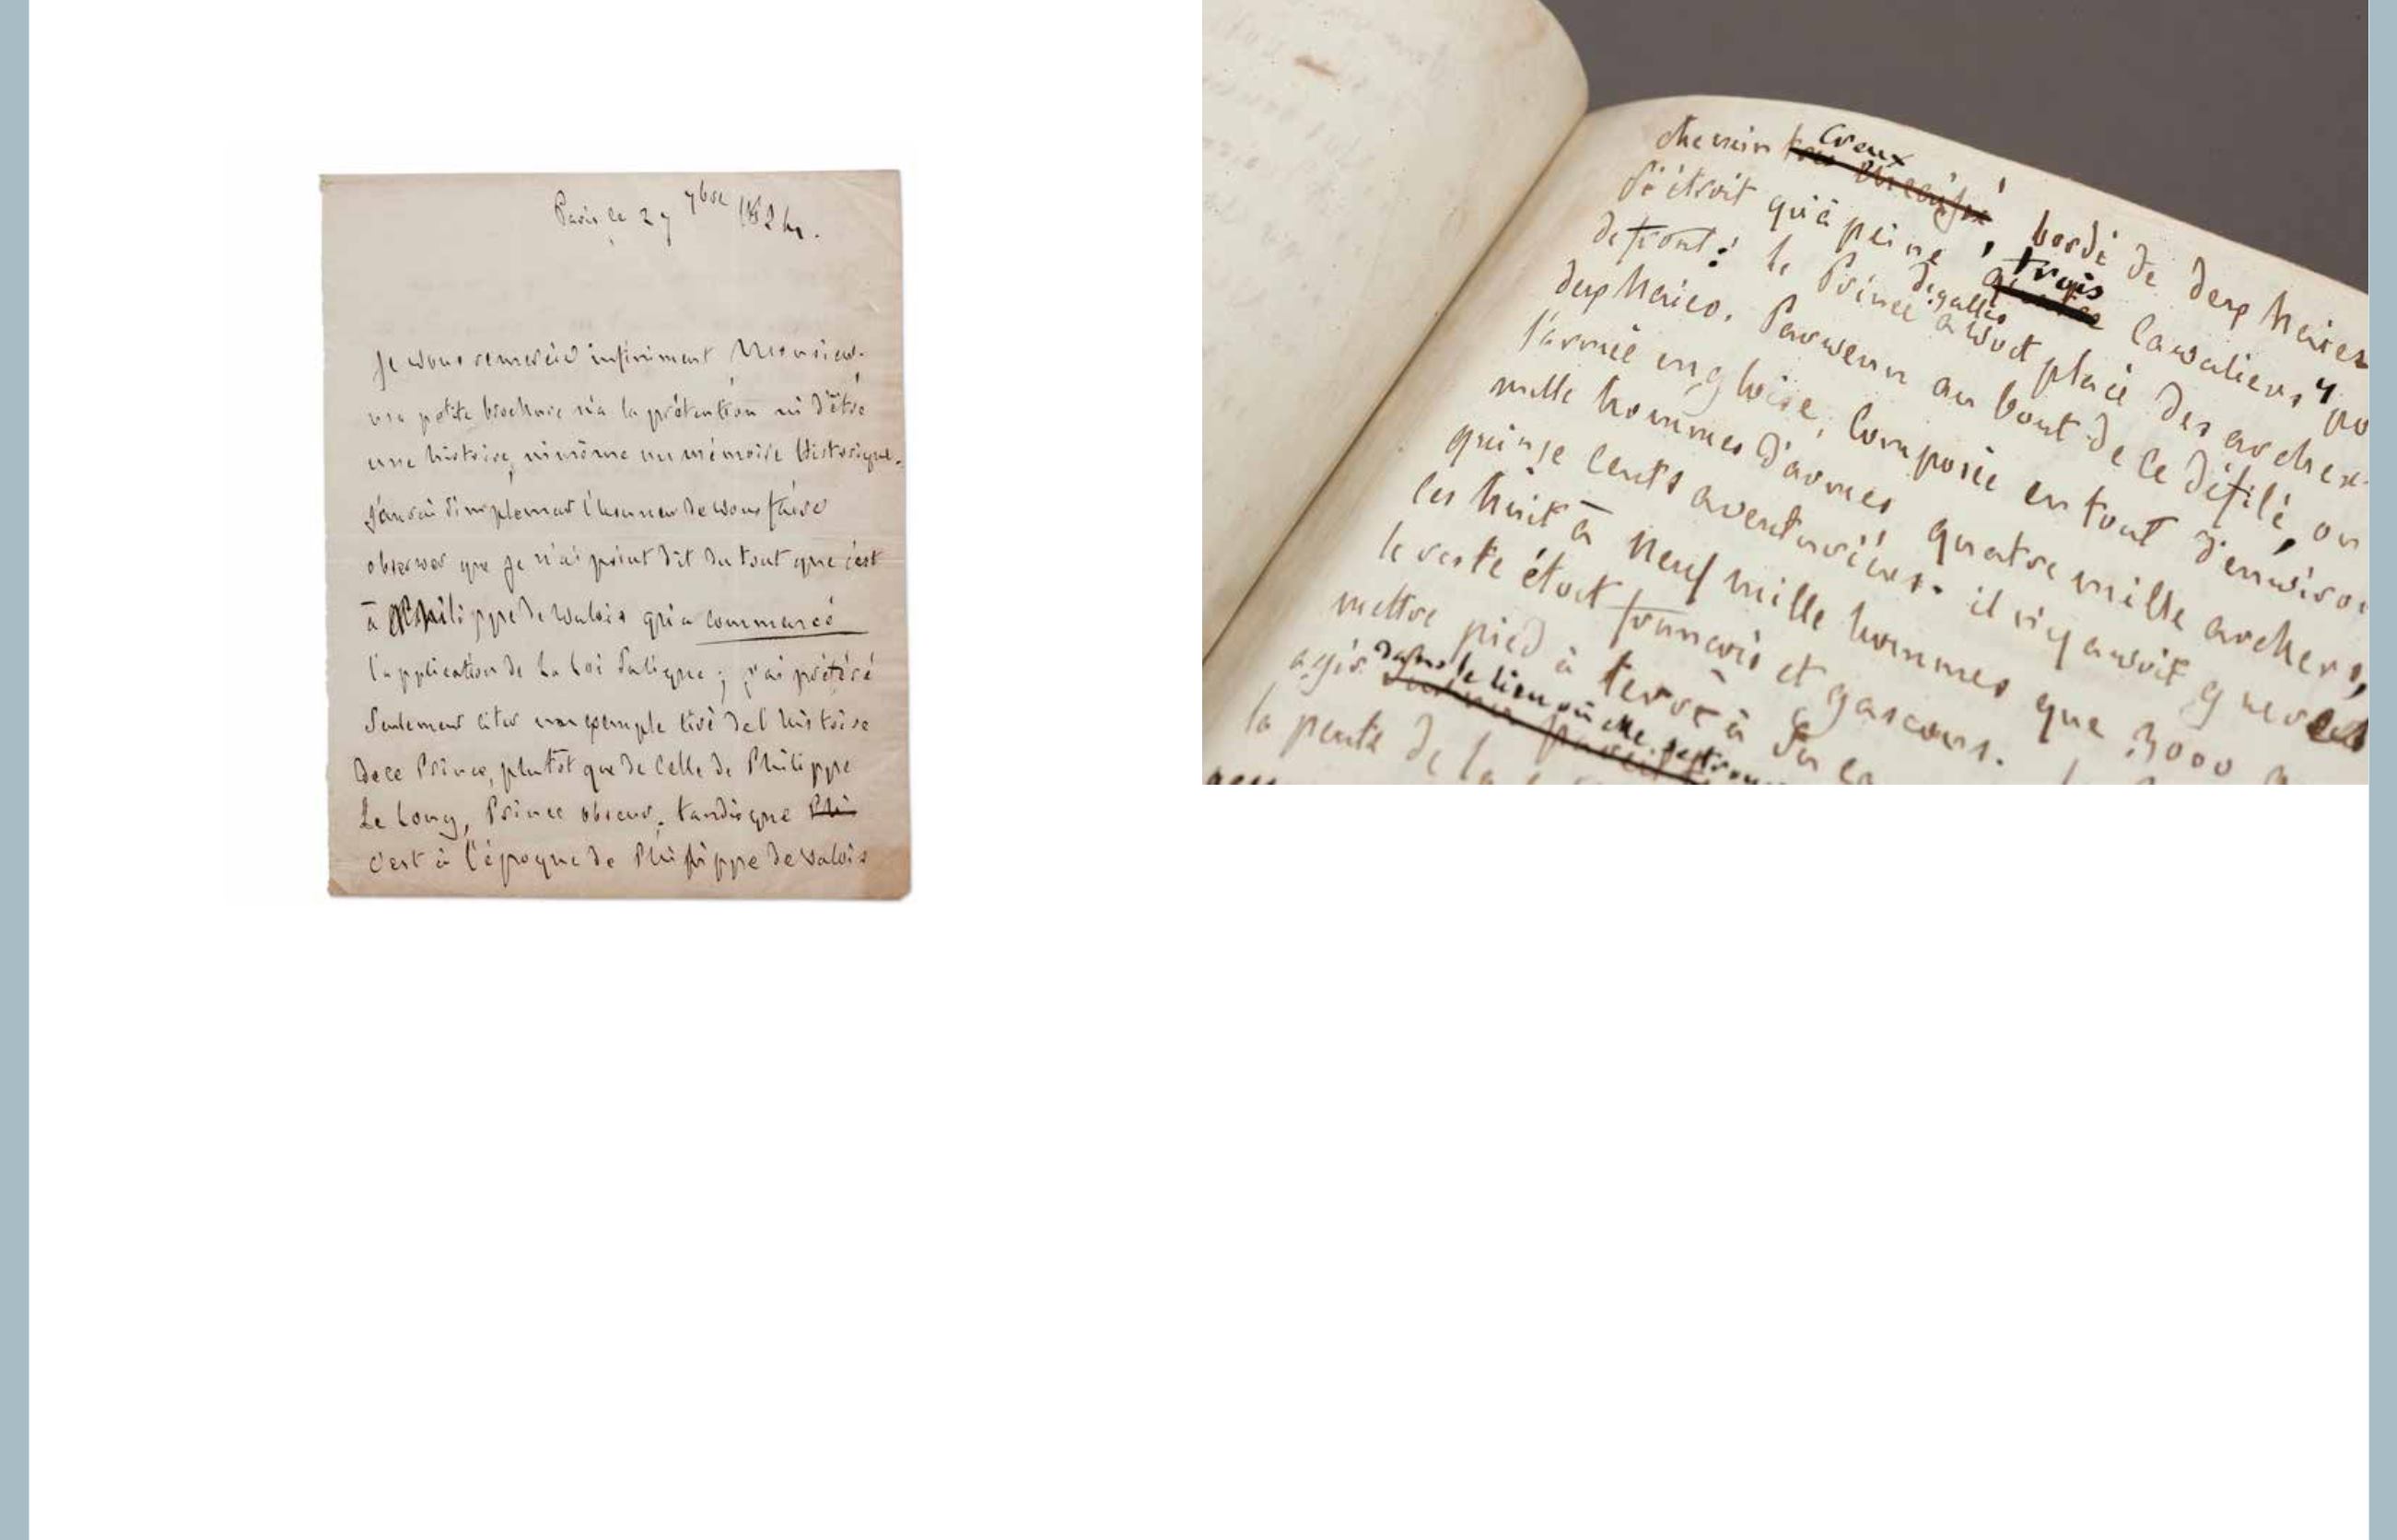 Paris, le 27 7bre 1824.
Je vous remercie infiniment Monsieur.
ma petite brochure n'a la prétention ni d'être
une histoire, ni même un mémoire historique.
j'aurai simplement l'honneur de vous faire
observer que je n'ai point dit du tout que c'est
à Philippe de Valois qui a commencé
l'application de la Loi Salique ; j'ai préféré
seulement citer un exemple tiré de l'histoire
de ce Prince, plutôt que de celle de Philippe
Le Long, Prince obscur, tandis que Phi
c'est à l'époque de Philippe de Valois
creux
chemin , bordé de deux haies
trois
si étroit qu'à peine cavaliers y
de galles
de front : le Prince avoit placé des archers
deux haies. Parvenu au bout de ce défilé, on
l'armée angloise, composée en tout d'environ
mille hommes d'armes quatre mille archers,
quinze cents aventuriers. il n'y avoit
les huit à neuf mille hommes que 3000
le reste étoit françois et gascons.
mettre pied à terre à
dans le lieu où elle
agir
la pente de la